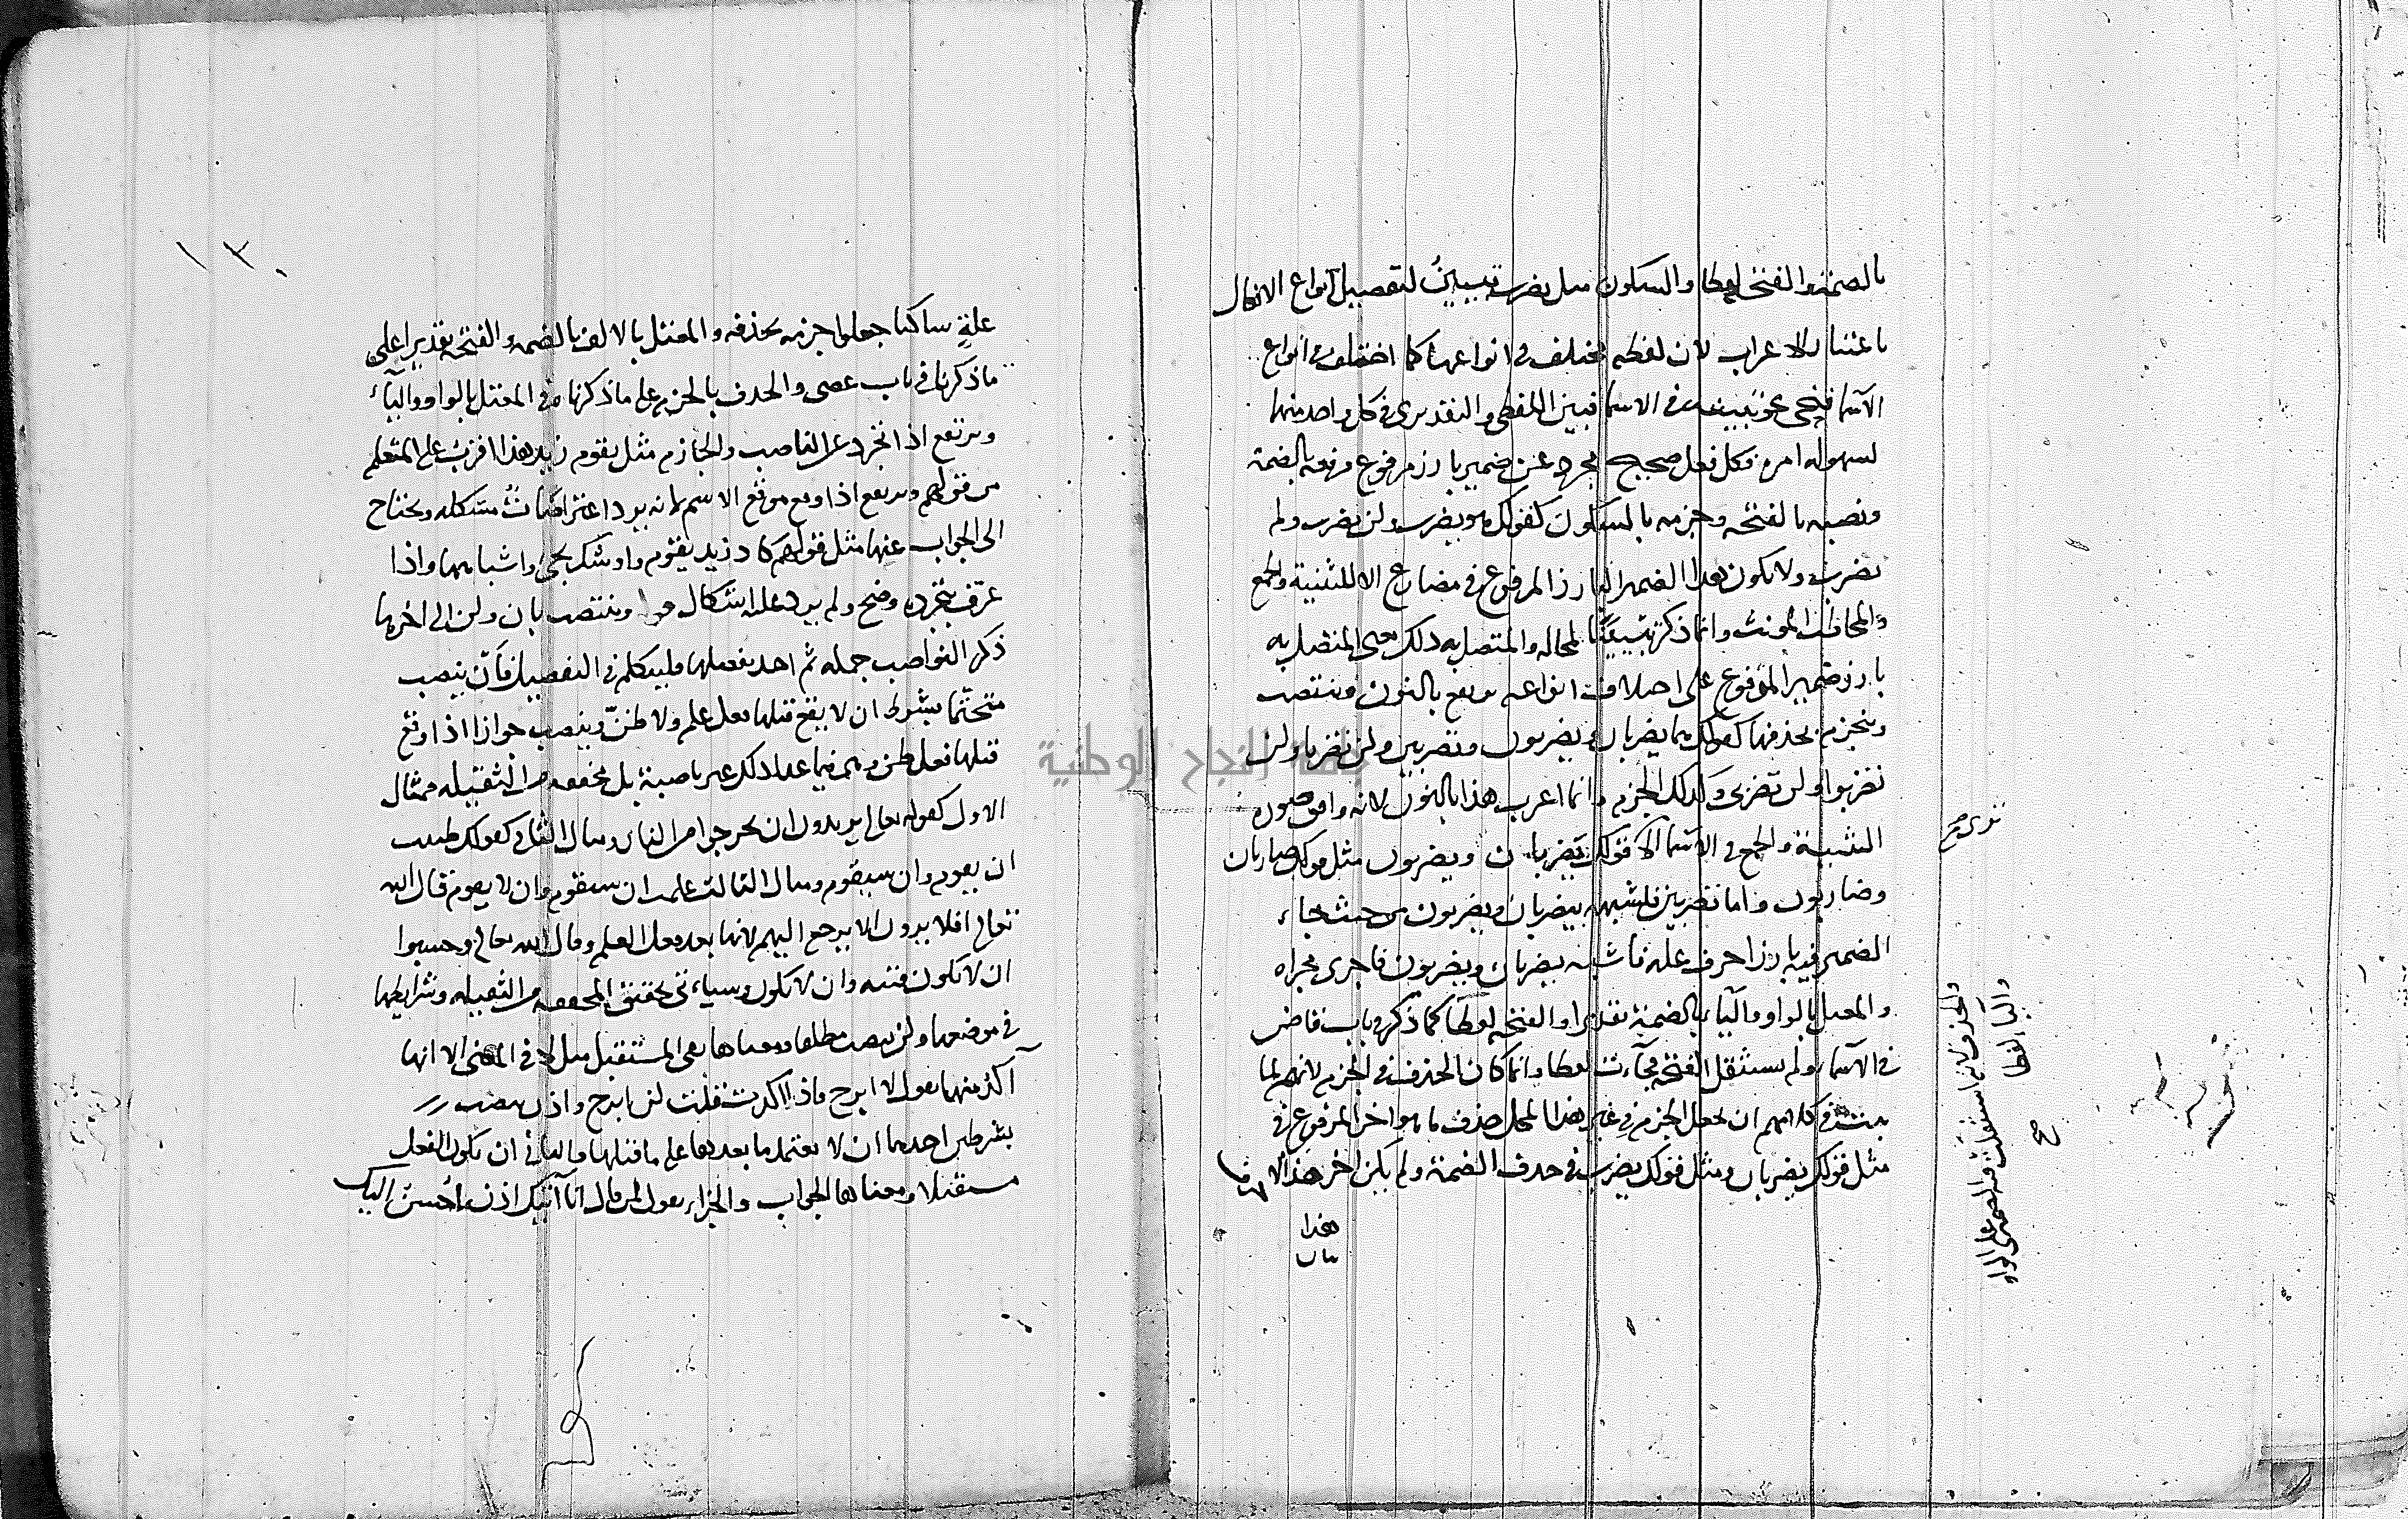 بالضمة والفتحة لفظا والسكون مثل يضرب تبيينٌ لتفصيل انواع الافعال
باعتبار الاعراب لان لفظه مختلف في انواعها كما اختلف في انواع
الاسما فنحى نحو تبيينه في الاسما فبين اللفظي والتقديري في كل واحد منهما
لسهولة امره فكل فعل صحيح مجرد عن ضمير بارز مرفوع فرفعه بالضمة
ونصبه بالفتحة وجزمه بالسكون كقولك هو يضرب ولن يضرب ولم
يضرب ولا يكون هذا الضمير البارز المرفوع في مضارع الا للتثنية والجمع
والمخاطب المونث وانما ذكر تبييناً لمحاله والمتصل به ذلك يعني المتصل به
بارز ضمير المرفوع على اختلاف انواعه يرفع بالنون وينتصب
وينجزم بحذفها كقولك هما يضربان ويضربون وتضربين ولن تضربا ولن
تضربوا ولن تضربي وكذلك الجزم وانما اعرب هذا بالنون لانه وافق صورة
التثنية والجمع في الاسما الا قولك يضربان ويضربون مثل قولك ضاربان
وضاربون واما تضربين فلشبهه بيضربان ويضربون من حيث جاء
الضمير فيه بارزا حرف علة فاشبه يضربان ويضربون فاجرى مجراه
والمعتل بالواو والياء بالضمة تقديرا والفتحة لفظا كما ذكر في باب قاض
في الاسماء ولم يستثقل الفتحة فجاءت لفظا وانما كان الحذف في الجزم لانهم لما
يثبت في كلامهم ان يجعل الجزم في غير هذا المحل حذف ما هو اخر المرفوع في
مثل قولك يضربان ومثل قولك يضرب في حذف الضمة ولم يكن اخر هذا الا
هذا
بان
والحذف لانها استثقلت فيه الضمة على الواو
والياء لفظا
صح
١٣٠
علةٍ ساكنا جعلوا جزمه بحذفه والمعتل بالالف بالضمة والفتحة تقديرا على
ما ذكرنا في باب عصى والحذف بالجزم على ما ذكرنا في المعتل بالواو والياء
ويرتفع اذا تجرد عن الناصب والجازم مثل يقوم زيد هذا اقرب على المتعلم
من قولهم ويرتفع اذا وقع موقع الاسم لانه يرد اعتراضات مشكلة ويحتاج
الى الجواب عنها مثل قولهم كاد زيد يقوم واوشك يجئ واشباههما واذا
عرف بتجرده وضح ولم يرد عليه اشكال وينتصب بان ولن الى اخرها
ذكر النواصب جملة ثم اخذ يفصلها فليتكلم في التفصيل فأن ينصب
متحتّما بشرط ان لا يقع قبلها فعل علم ولا ظنّ وينصب جوازا اذا وقع
قبلها فعل ظن وهي فيما عدا ذلك غير ناصبة بل مخففة من الثقيلة مثال
الاول كقوله تعالى يريدون ان يخرجوا من النار ومثال الثاني كقولك ظننت
ان يقوم وان سيقوم ومثال الثالث علمت ان سيقوم وان لا يقوم قال الله
تعالى افلا يرون الا يرجع اليهم لانها بعد فعل العلم وقال الله تعالى وحسبوا
ان لا تكون فتنة وان لا تكون وسياتي تحقيق المخففة من الثقيلة وشرايطها
في موضعها ولن ينصب مطلقا ومعناها نفي المستقبل مثل لا في المعنى الا انها
آكد منها تقول لا ابرح فاذا اكدت قلت لن ابرح واذن ينصب
بشرطين احدهما ان لا يعتمد ما بعدها على ما قبلها والثاني ان يكون الفعل
مستقبلا ومعناها الجواب والجزاء تقول لمن قال انا آتيك اذن احسن اليك
جامعة النجاح الوطنية